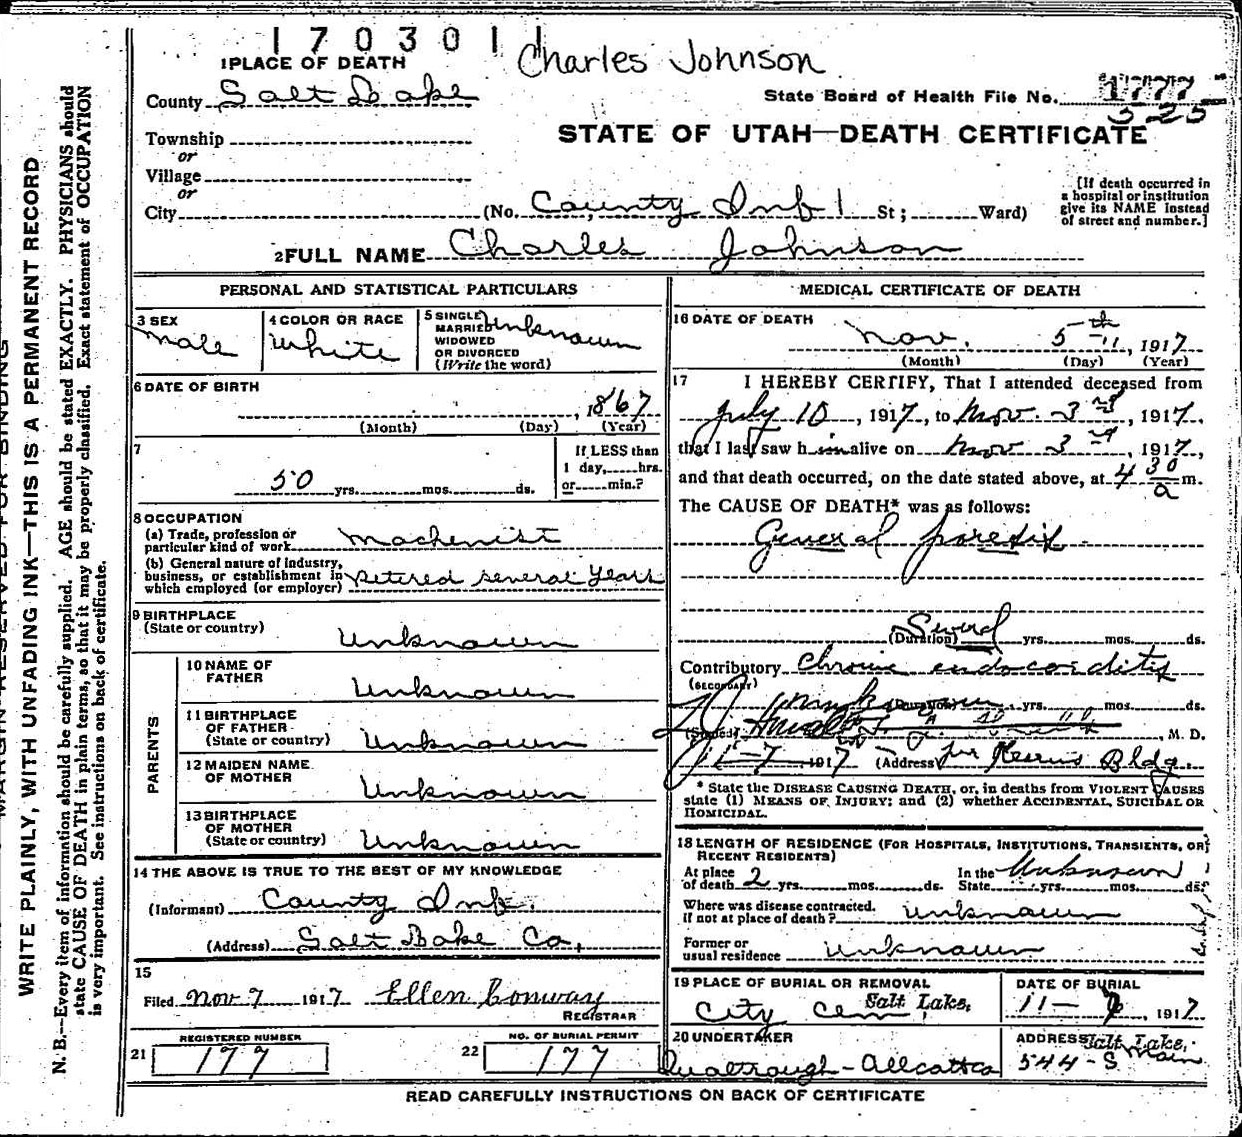 1703011
Charles Johnson
1 PLACE OF DEATH
County Salt Lake
State Board of Health File No. 1777
525
Township
or
Village
or
City
STATE OF UTAH—DEATH CERTIFICATE
(No. County Inf St; Ward)
[If death occurred in
a hospital or institution
give its NAME instead
of street and number.]
2 FULL NAME Charles Johnson
PERSONAL AND STATISTICAL PARTICULARS
3 SEX
Male
4 COLOR OR RACE
White
5 SINGLE
MARRIED
WIDOWED
OR DIVORCED
(Write the word)
Unknown
6 DATE OF BIRTH
, 1867
(Month) (Day) (Year)
7
50 yrs. mos. ds.
If LESS than
1 day, hrs.
or min.?
8 OCCUPATION
(a) Trade, profession or
particular kind of work Machenist
(b) General nature of industry,
business, or establishment in
which employed (or employer) Retired several Years
9 BIRTHPLACE
(State or country)
Unknown
PARENTS
10 NAME OF
FATHER
Unknown
11 BIRTHPLACE
OF FATHER
(State or country)
Unknown
12 MAIDEN NAME
OF MOTHER
Unknown
13 BIRTHPLACE
OF MOTHER
(State or country)
Unknown
14 THE ABOVE IS TRUE TO THE BEST OF MY KNOWLEDGE
(Informant) County Inf.
(Address) Salt Lake Co.
15
Filed Nov 7 1917 Ellen Conway
REGISTRAR
REGISTERED NUMBER
21 177
NO. OF BURIAL PERMIT
22 177
MEDICAL CERTIFICATE OF DEATH
16 DATE OF DEATH
Nov. 5th, 1917
(Month) (Day) (Year)
17 I HEREBY CERTIFY, That I attended deceased from
July 10, 1917, to Nov. 3rd, 1917,
that I last saw him alive on Nov 3rd, 1917,
and that death occurred, on the date stated above, at 4 30 a m.
The CAUSE OF DEATH* was as follows:
General paresis
Several
(Duration) yrs. mos. ds.
Contributory Chronic endocarditis
(SECONDARY)
(Duration) yrs. mos. ds.
(Signed) , M. D.
11-7-1917 (Address) Kearns Bldg.
* State the DISEASE CAUSING DEATH, or, in deaths from VIOLENT CAUSES
state (1) MEANS OF INJURY; and (2) whether ACCIDENTAL, SUICIDAL OR
HOMICIDAL.
18 LENGTH OF RESIDENCE (FOR HOSPITALS, INSTITUTIONS, TRANSIENTS, OR
RECENT RESIDENTS)
At place
of death 2 yrs. mos. ds.
In the
State yrs. mos. ds.
Unknown
Where was disease contracted.
if not at place of death? Unknown
Former or
usual residence Unknown
19 PLACE OF BURIAL OR REMOVAL
City Cem Salt Lake.
DATE OF BURIAL
11-7, 1917
20 UNDERTAKER
ADDRESS Salt Lake.
544-S Main
READ CAREFULLY INSTRUCTIONS ON BACK OF CERTIFICATE
WRITE PLAINLY, WITH UNFADING INK—THIS IS A PERMANENT RECORD
N. B.—Every item of information should be carefully supplied. AGE should be stated EXACTLY. PHYSICIANS should
state CAUSE OF DEATH in plain terms, so that it may be properly classified. Exact statement of OCCUPATION
is very important. See instructions on back of certificate.